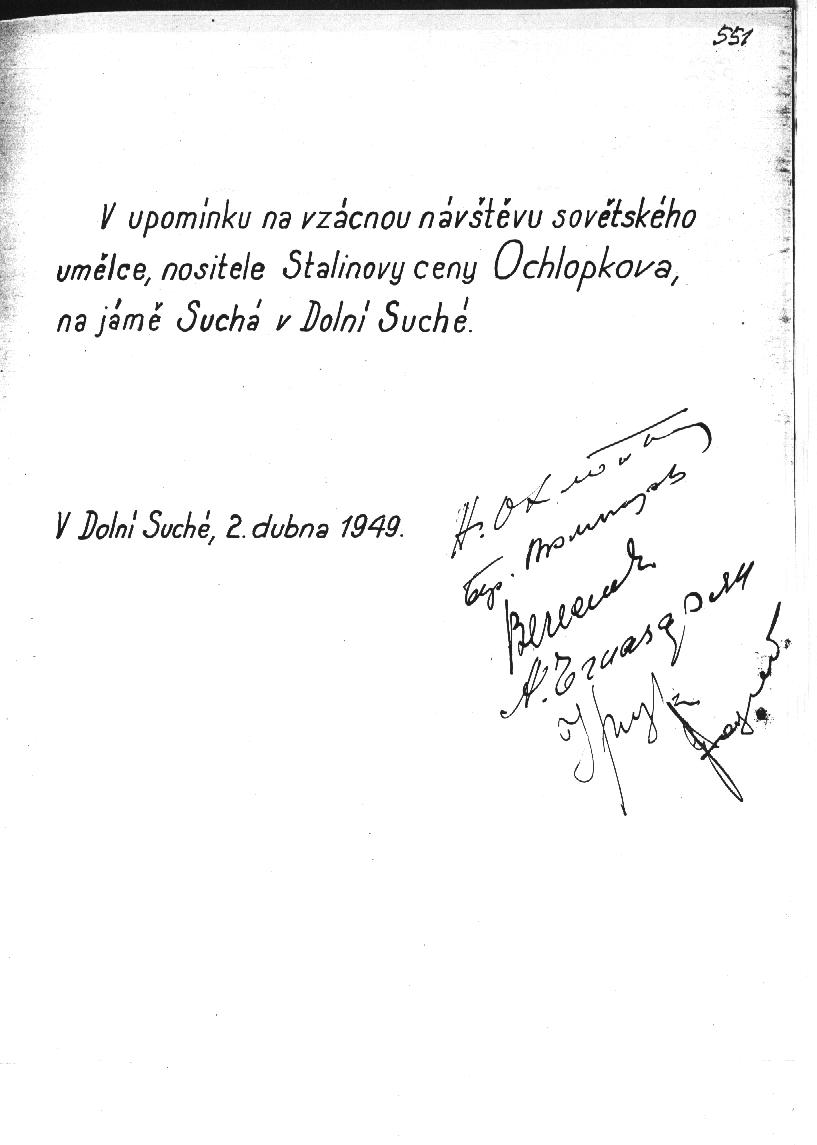 551
V upomínku na vzácnou návštěvu sovětského
umělce, nositele Stalinovy ceny Ochlopkova,
na jámě Suchá v Dolní Suché.
V Dolní Suché, 2. dubna 1949.
Н.
А.